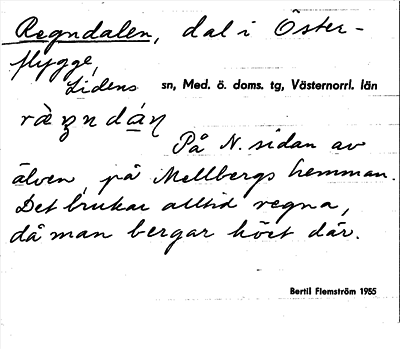 Regndalen, dal i Öster-
flygge,
Lidens sn, Med. ö. doms. tg, Västernorrl. län
På N. sidan av
älven, på Mellbergs hemman.
Det brukar alltid regna,
då man bergar höet där.
Bertil Flemström 1955